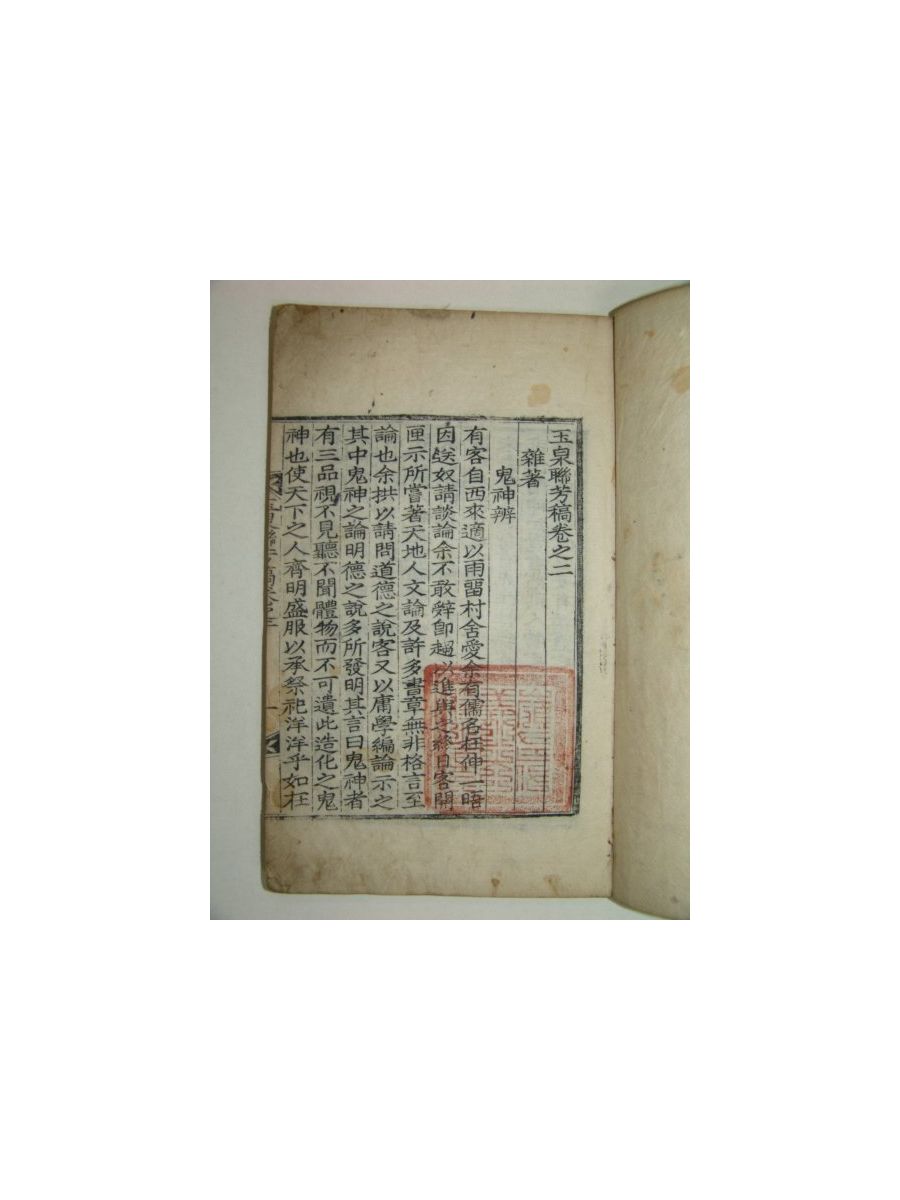 玉泉聯芳稿卷之二
雜著
鬼神辨
有客自西來適以雨留村舍愛余有儒名枉伸一晤
因送奴請談論余不敢辭卽趨以進與之終日客開
匣示所嘗著天地人文論及許多書章無非格言至
論也余拱以請問道德之說客又以庸學編論示之
其中鬼神之論明德之說多所發明其言曰鬼神者
有三品視不見聽不聞體物而不可遺此造化之鬼
神也使天下之人齊明盛服以承祭祀洋洋乎如在